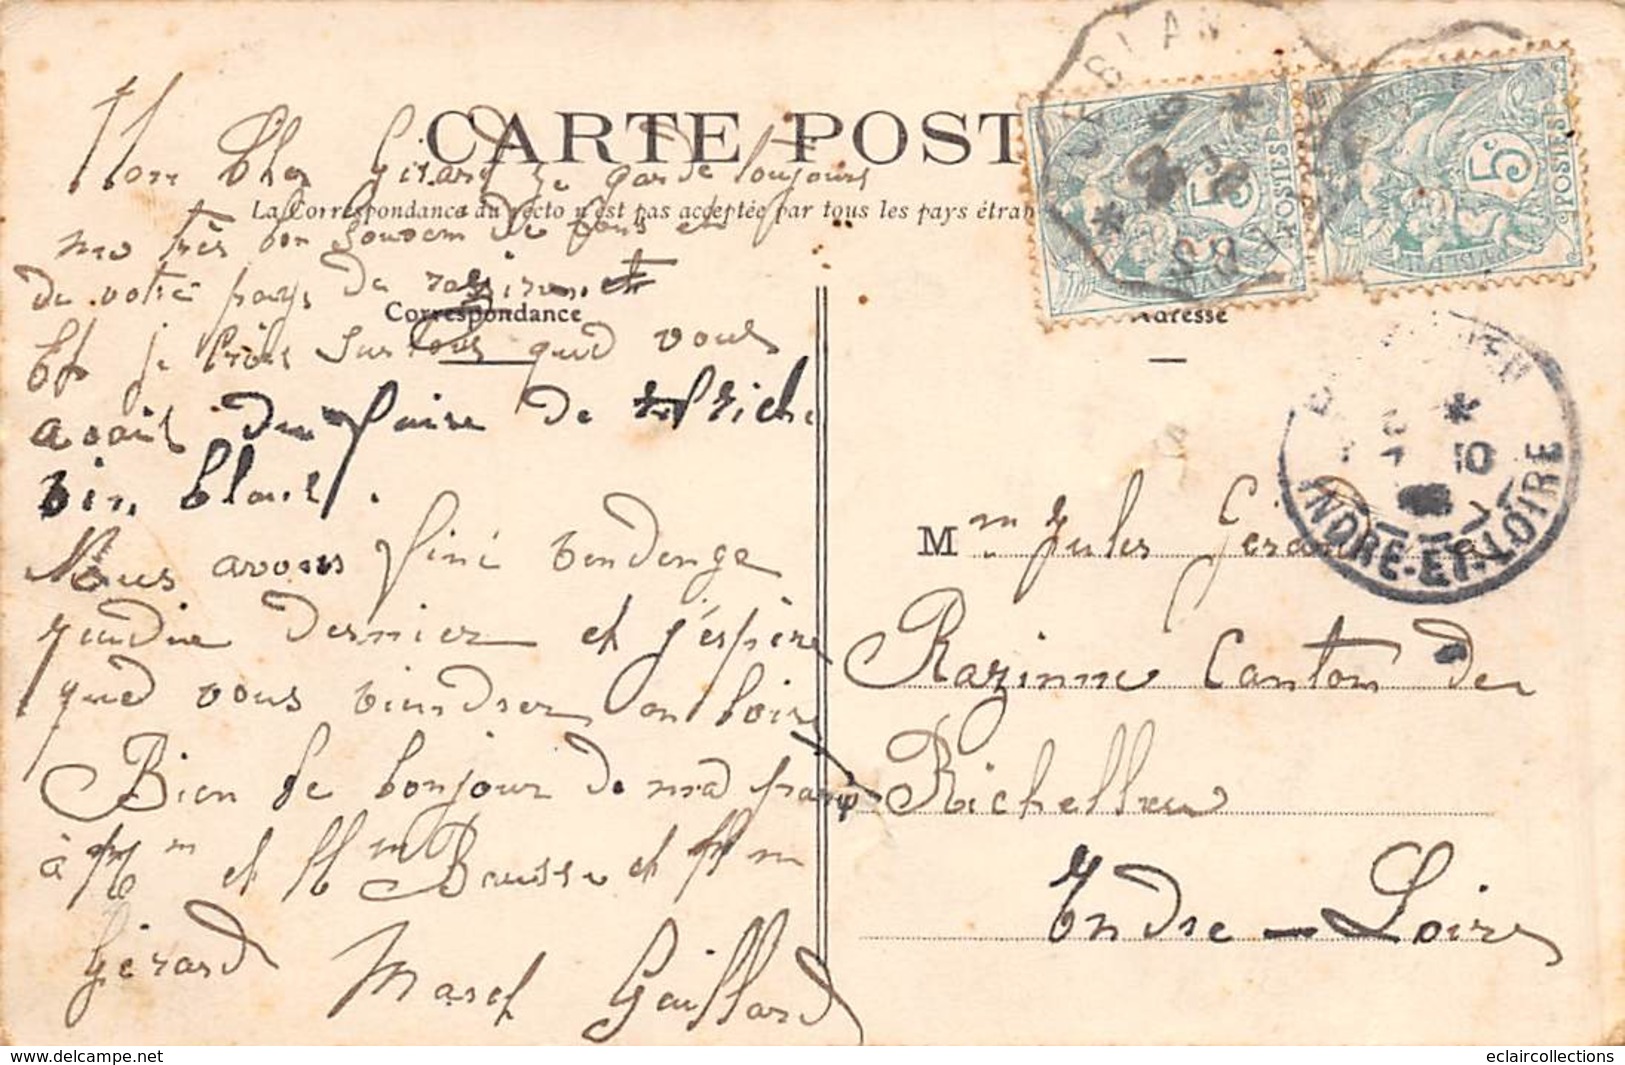 CARTE POST
La Correspondance au recto n'est pas acceptée par tous les pays étran
Correspondance
Adresse
Mon Cher Girard je garde toujours
mo très bon Souvem de vous et
de votre pays de
Et je crois surtous que vous
avait du faire de riche
vin blanc.
Nous avons fini vendenge
jeudie dernier et j'espère
que vous viendrer en boire
Bien de bonjour de ma par
à Mm et Mm Bausse et Mm
Gérard Marcel Gaillard
Mm Jules Gérard
Razinne Canton de
Richellieu
Indre-Loire
LEBLAN
5c POSTES
5c POSTES
INDRE-ET-LOIRE
10
www.delcampe.net
eclaircollections